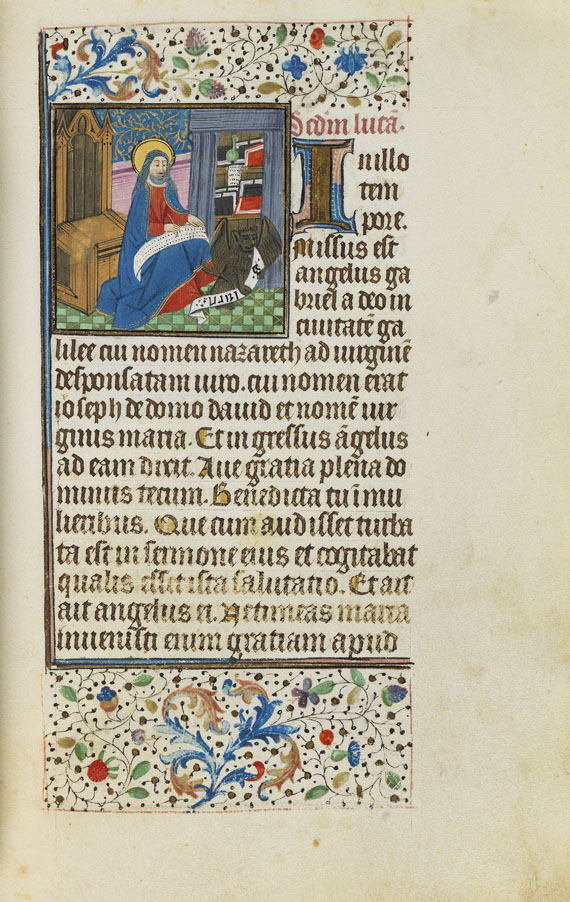 Scdm lucā.
In illo
tem
pore.
Missus est
angelus ga
briel a deo in
ciuitatē ga
lilee cui nomen nazareth ad uirginē
desponsatam uiro. cui nomen erat
ioseph de domo dauid et nomē uir
ginis maria. Et in gressus āgelus
ad eam dixit. Aue gratia plena do
minus tecum. Benedicta tu i mu
lieribus. Que cum audisset turba
ta est in sermone eius et cogitabat
qualis esset ista salutatio. Et ait
ait angelus ei. Ne timeas maria
inuenisti enim gratiam apud